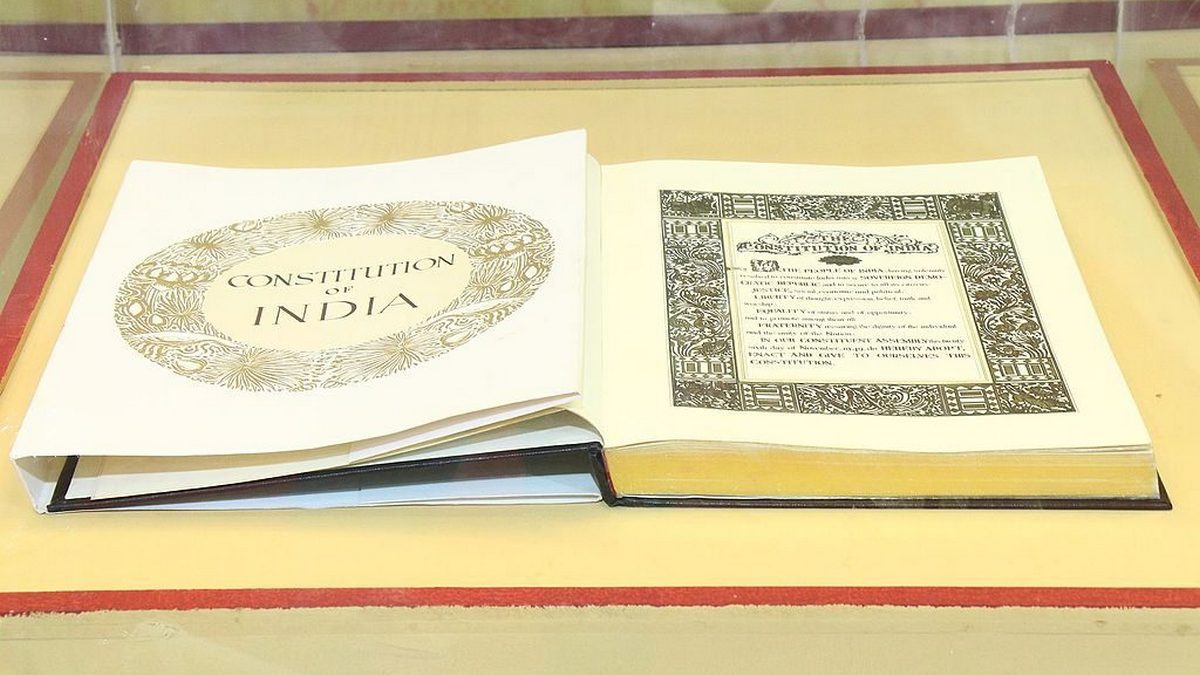 CONSTITUTION
OF
INDIA
CONSTITUTION OF INDIA
WE, THE PEOPLE OF INDIA, having solemnly
resolved to constitute India into a SOVEREIGN DEMO-
CRATIC REPUBLIC and to secure to all its citizens:
JUSTICE, social, economic and political;
LIBERTY of thought, expression, belief, faith and
worship;
EQUALITY of status and of opportunity;
and to promote among them all
FRATERNITY assuring the dignity of the individual
and the unity of the Nation;
IN OUR CONSTITUENT ASSEMBLY this twenty
sixth day of November, 1949, do HEREBY ADOPT,
ENACT AND GIVE TO OURSELVES THIS
CONSTITUTION.